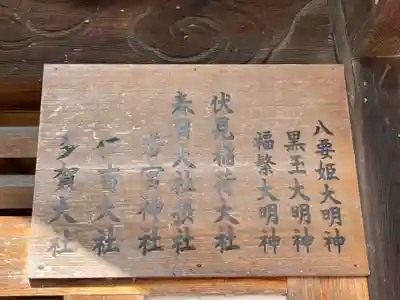 八要姫大明神
黒玉大明神
福繁大明神
伏見稲荷大社
春日大社摂社
若宮神社
住吉大社
多賀大社